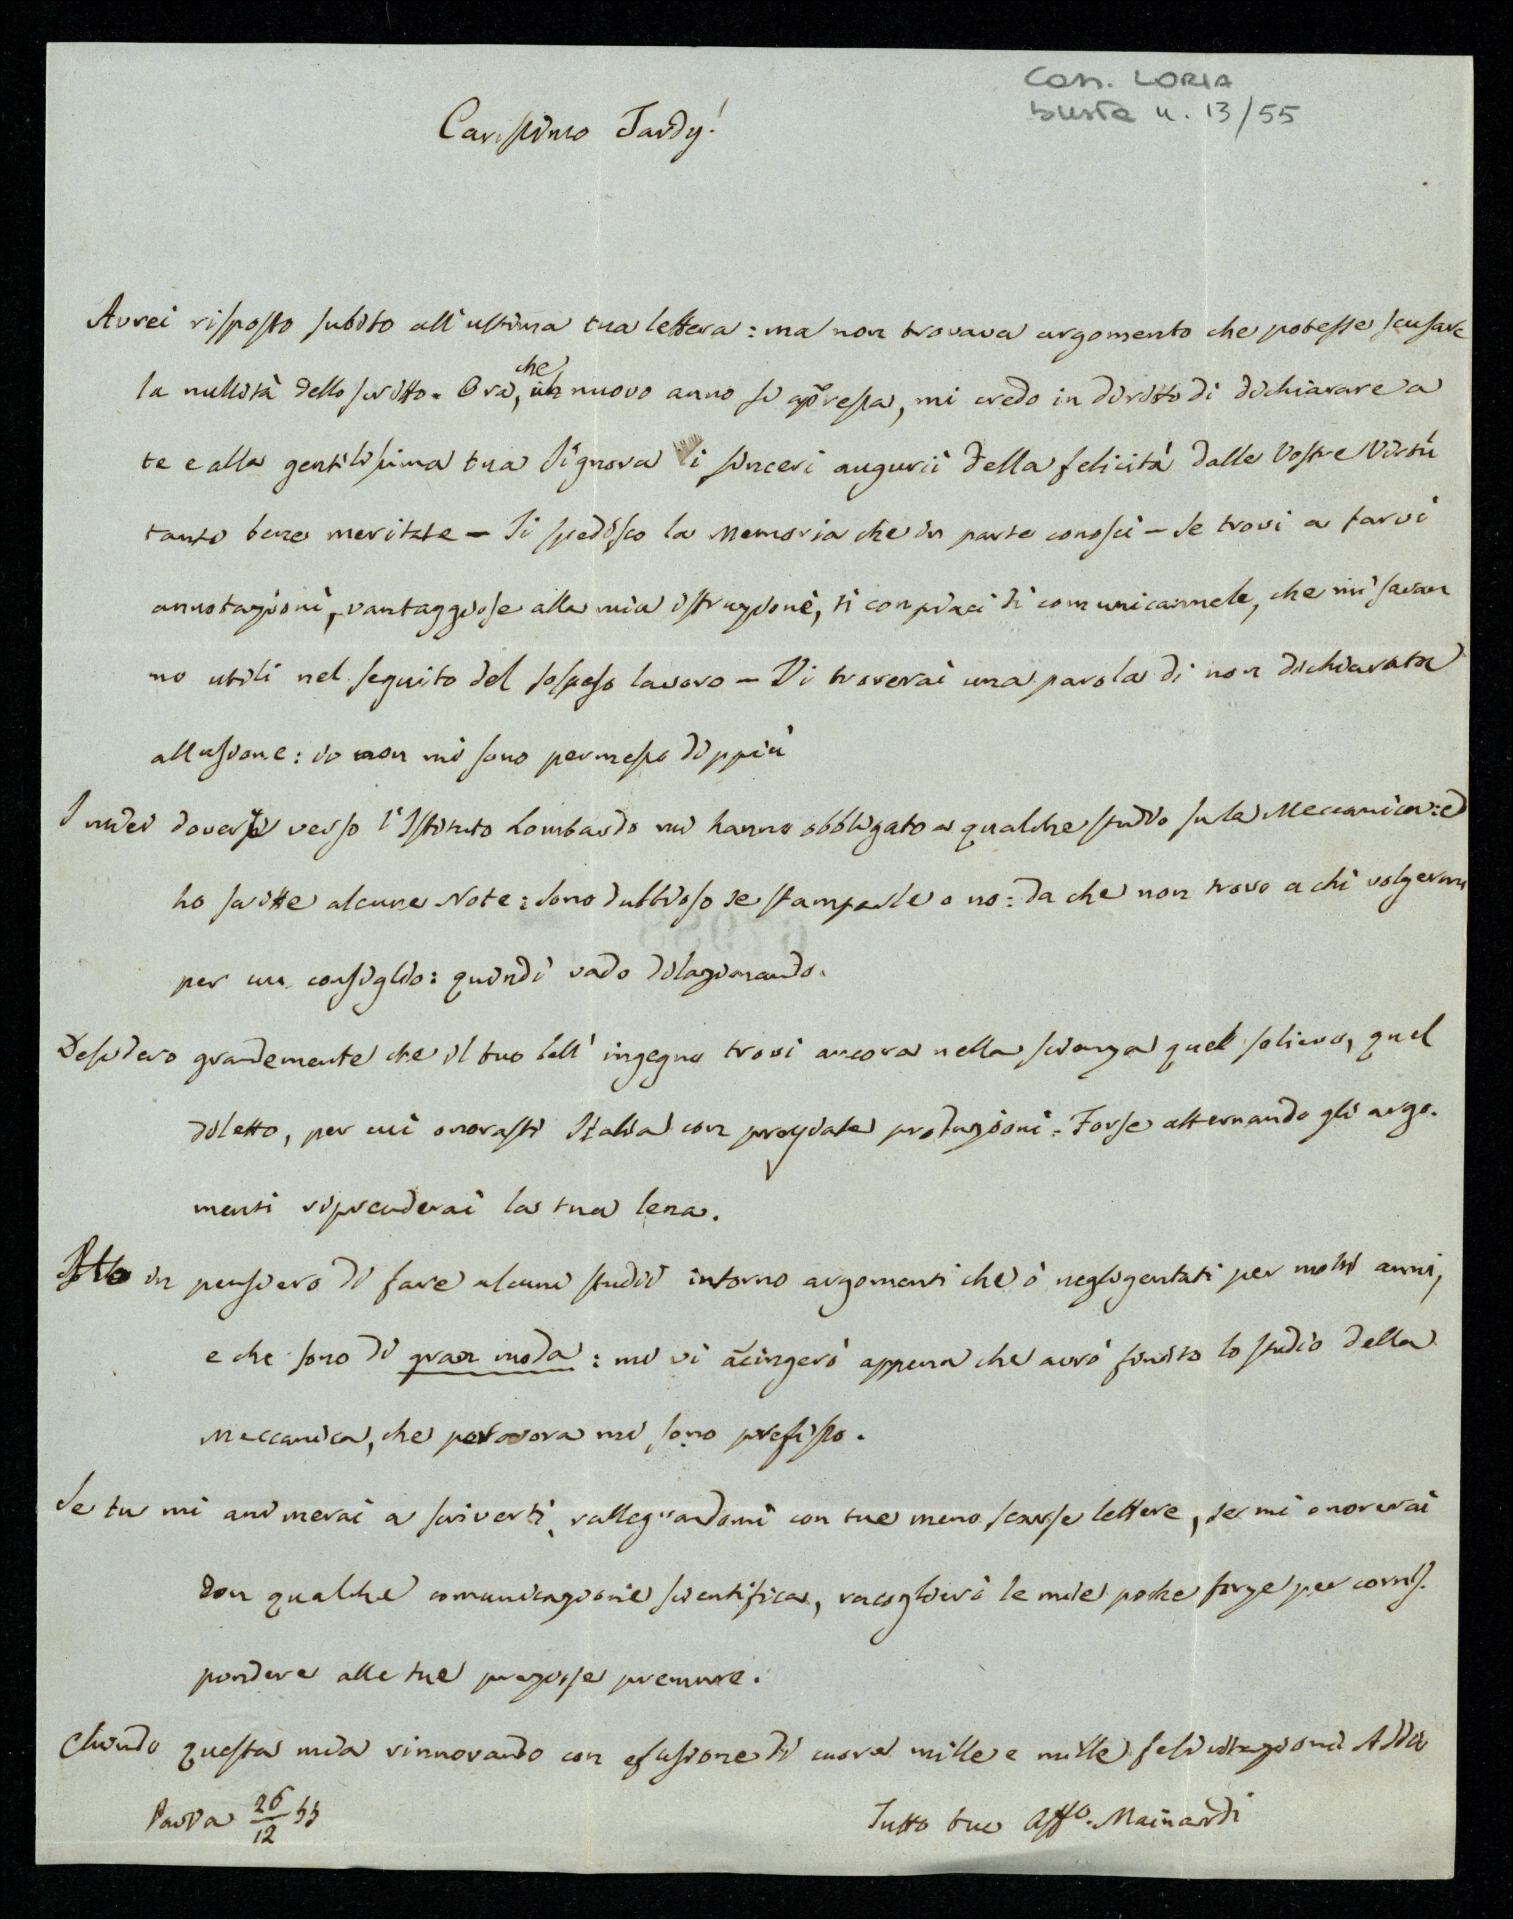 Cass. LORIA
busta n. 13/55
Carissimo Tardy!
Avrei risposto subito all'ultima tua lettera: ma non trovava argomento che potesse scusare
la nullità dello scritto. Ora, che un nuovo anno si appressa, mi credo in diritto di dichiarare a
te e alla gentilissima tua Signora i sinceri augurii della felicità dalle Vostre Virtù
tanto bene meritate – Ti spedisco la Memoria che in parte conosci – Se trovi a farvi
annotazioni, vantaggiose alla mia istruzione, ti compiaci di comunicarmele, che mi saran
no utili nel seguito del sospeso lavoro – Vi troverai una parola di non dichiarata
allusione: io non mi sono permesso di più
I miei doveri verso l'Istituto Lombardo mi hanno obbligato a qualche studio su la Meccanica: ed
ho scritte alcune Note: sono dubbioso se stamparle o no: da che non trovo a chi volgermi
per un consiglio: quindi vado dilazionando.
Desidero grandemente che il tuo bell'ingegno trovi ancora nella scienza quel solievo, quel
diletto, per cui onorasti Italia con pregiate produzioni. Forse alternando gli argo-
menti riprenderai la tua lena.
in pensiero di fare alcuni studii intorno argomenti che ò negligentati per molti anni,
e che sono di gran moda: mi vi accingerò appena che avrò finito lo studio della
Meccanica, che per ora mi sono prefisso.
Se tu mi animerai a scriverti, rallegrandomi con tue meno scarse lettere, se mi onorerai
con qualche comunicazione scientifica, raccoglierò le mie poche forze per corris-
pondere alle tue preziose premure.
Chiudo questa mia rinnovando con efusione di cuore mille e mille felicitazioni Addio
Pavia 26/12 55
Tutto tuo Affo. Mainardi